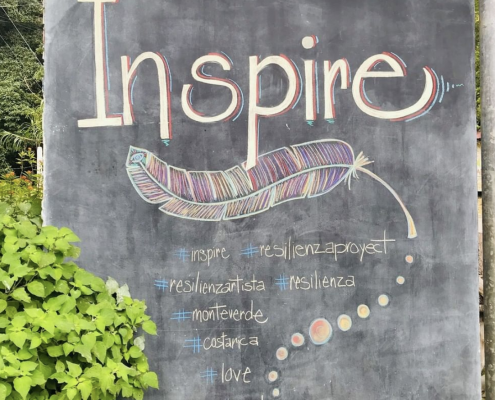 Inspire
#inspire #resilienzaproyect
#resilienzartista #resilienza
#monteverde
#costarrica
#love